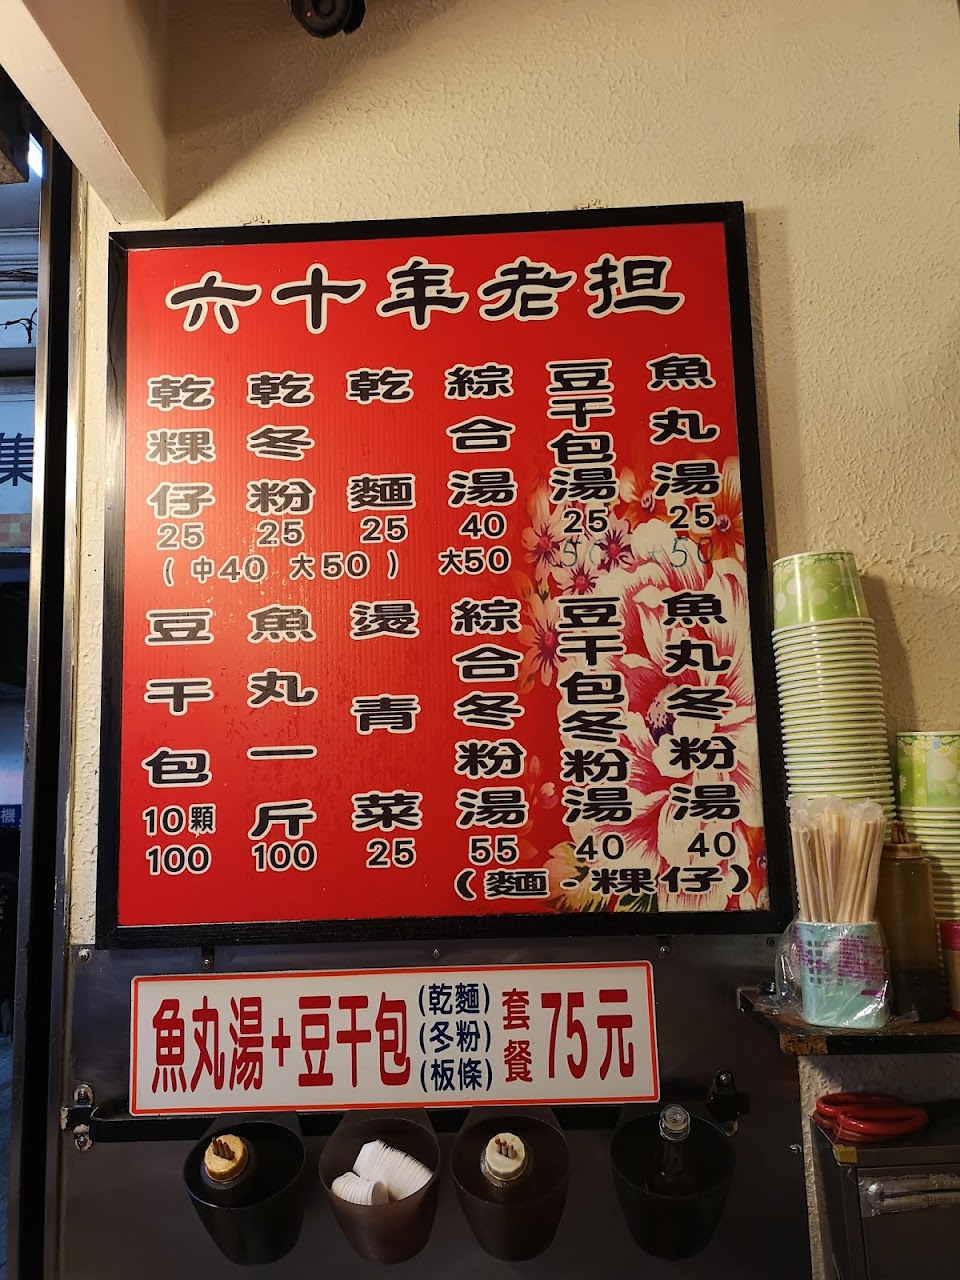 六十年老担
魚丸湯
25
50
豆干包湯
25
50
綜合湯
40
大50
乾麵
25
乾冬粉
25
乾粿仔
25
(中40 大50)
魚丸冬粉湯
40
豆干包冬粉湯
40
綜合冬粉湯
55
(麵·粿仔)
燙青菜
25
魚丸一斤
100
豆干包
10顆
100
魚丸湯+豆干包
(乾麵)
(冬粉)
(板條)
套餐
75元
集
機